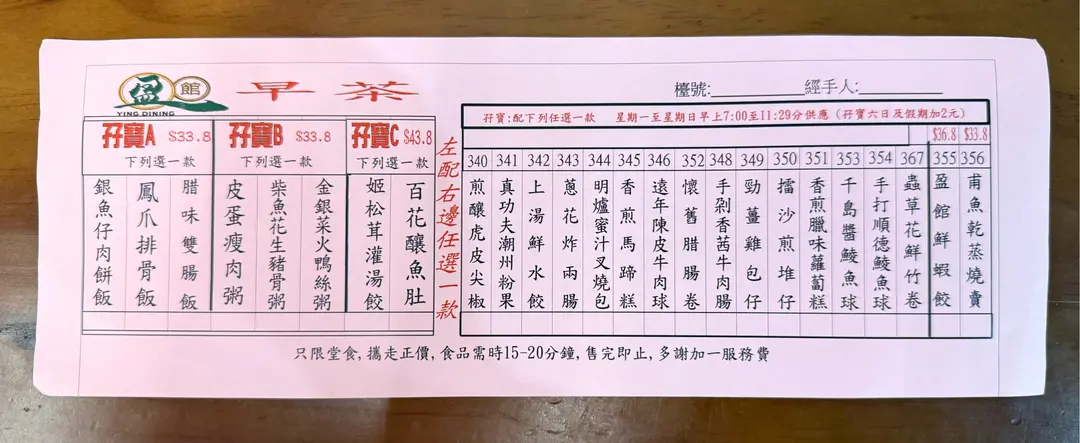 盈館 早茶
YING DINING
檯號:________ 經手人:________
孖寶A $33.8
下列選一款
銀魚仔肉餅飯
鳳爪排骨飯
腊味雙腸飯
孖寶B $33.8
下列選一款
皮蛋瘦肉粥
柴魚花生豬骨粥
金銀菜火鴨絲粥
孖寶C $43.8
下列選一款
姬松茸灌湯餃
百花釀魚肚
左配右邊任選一款
孖寶:配下列任選一款 星期一至星期日早上7:00至11:29分供應 (孖寶六日及假期加2元)
$36.8 $33.8
340 煎釀虎皮尖椒
341 真功夫潮州粉果
342 上湯鮮水餃
343 蔥花炸兩腸
344 明爐蜜汁叉燒包
345 香煎馬蹄糕
346 遠年陳皮牛肉球
352 懷舊腊腸卷
348 手剁香茜牛肉腸
349 勁薑雞包仔
350 擂沙煎堆仔
351 香煎臘味蘿蔔糕
353 千島醬鯪魚球
354 手打順德鯪魚球
367 蟲草花鮮竹卷
355 盈館鮮蝦餃
356 甫魚乾蒸燒賣
只限堂食, 攜走正價, 食品需時15-20分鐘, 售完即止, 多謝加一服務費